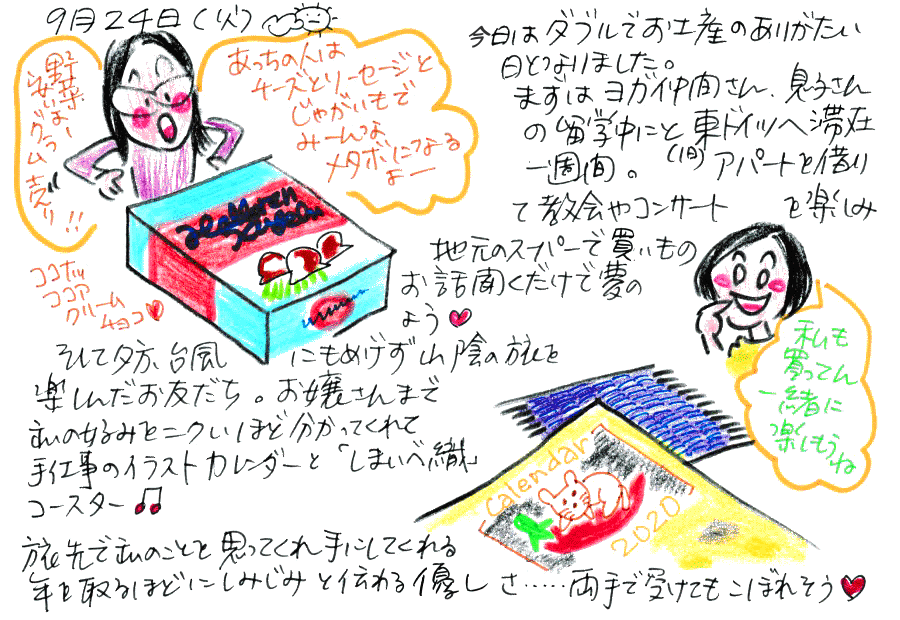 9月24日(火)
野菜
安いよー
グラム売り!!
あっちの人は
チーズとソーセージと
じゃがいもで
みーんな
メタボになるよー
ココナッツ
ココア
クリーム
チョコ
今日はダブルでお土産のありがたい
日となりました。
まずはヨガ仲間さん、息子さん
の留学中にと東ドイツへ滞在
一週間。(1間)アパートを借り
て教会やコンサートを楽しみ
地元のスーパーで買いもの
お話聞くだけで夢の
よう
私も
買ってん
一緒に
楽しもうね
そして夕方、台風にもめげず山陰の旅を
楽しんだお友だち。お嬢さんまで
私の好みをニクいほど分かってくれて
手仕事のイラストカレンダーと「しまいべ織」
コースター♫
Calendar
2020
旅先で私のことを思ってくれ手にしてくれる
年を取るほどにしみじみと伝わる優しさ……両手で受けてもこぼれそう